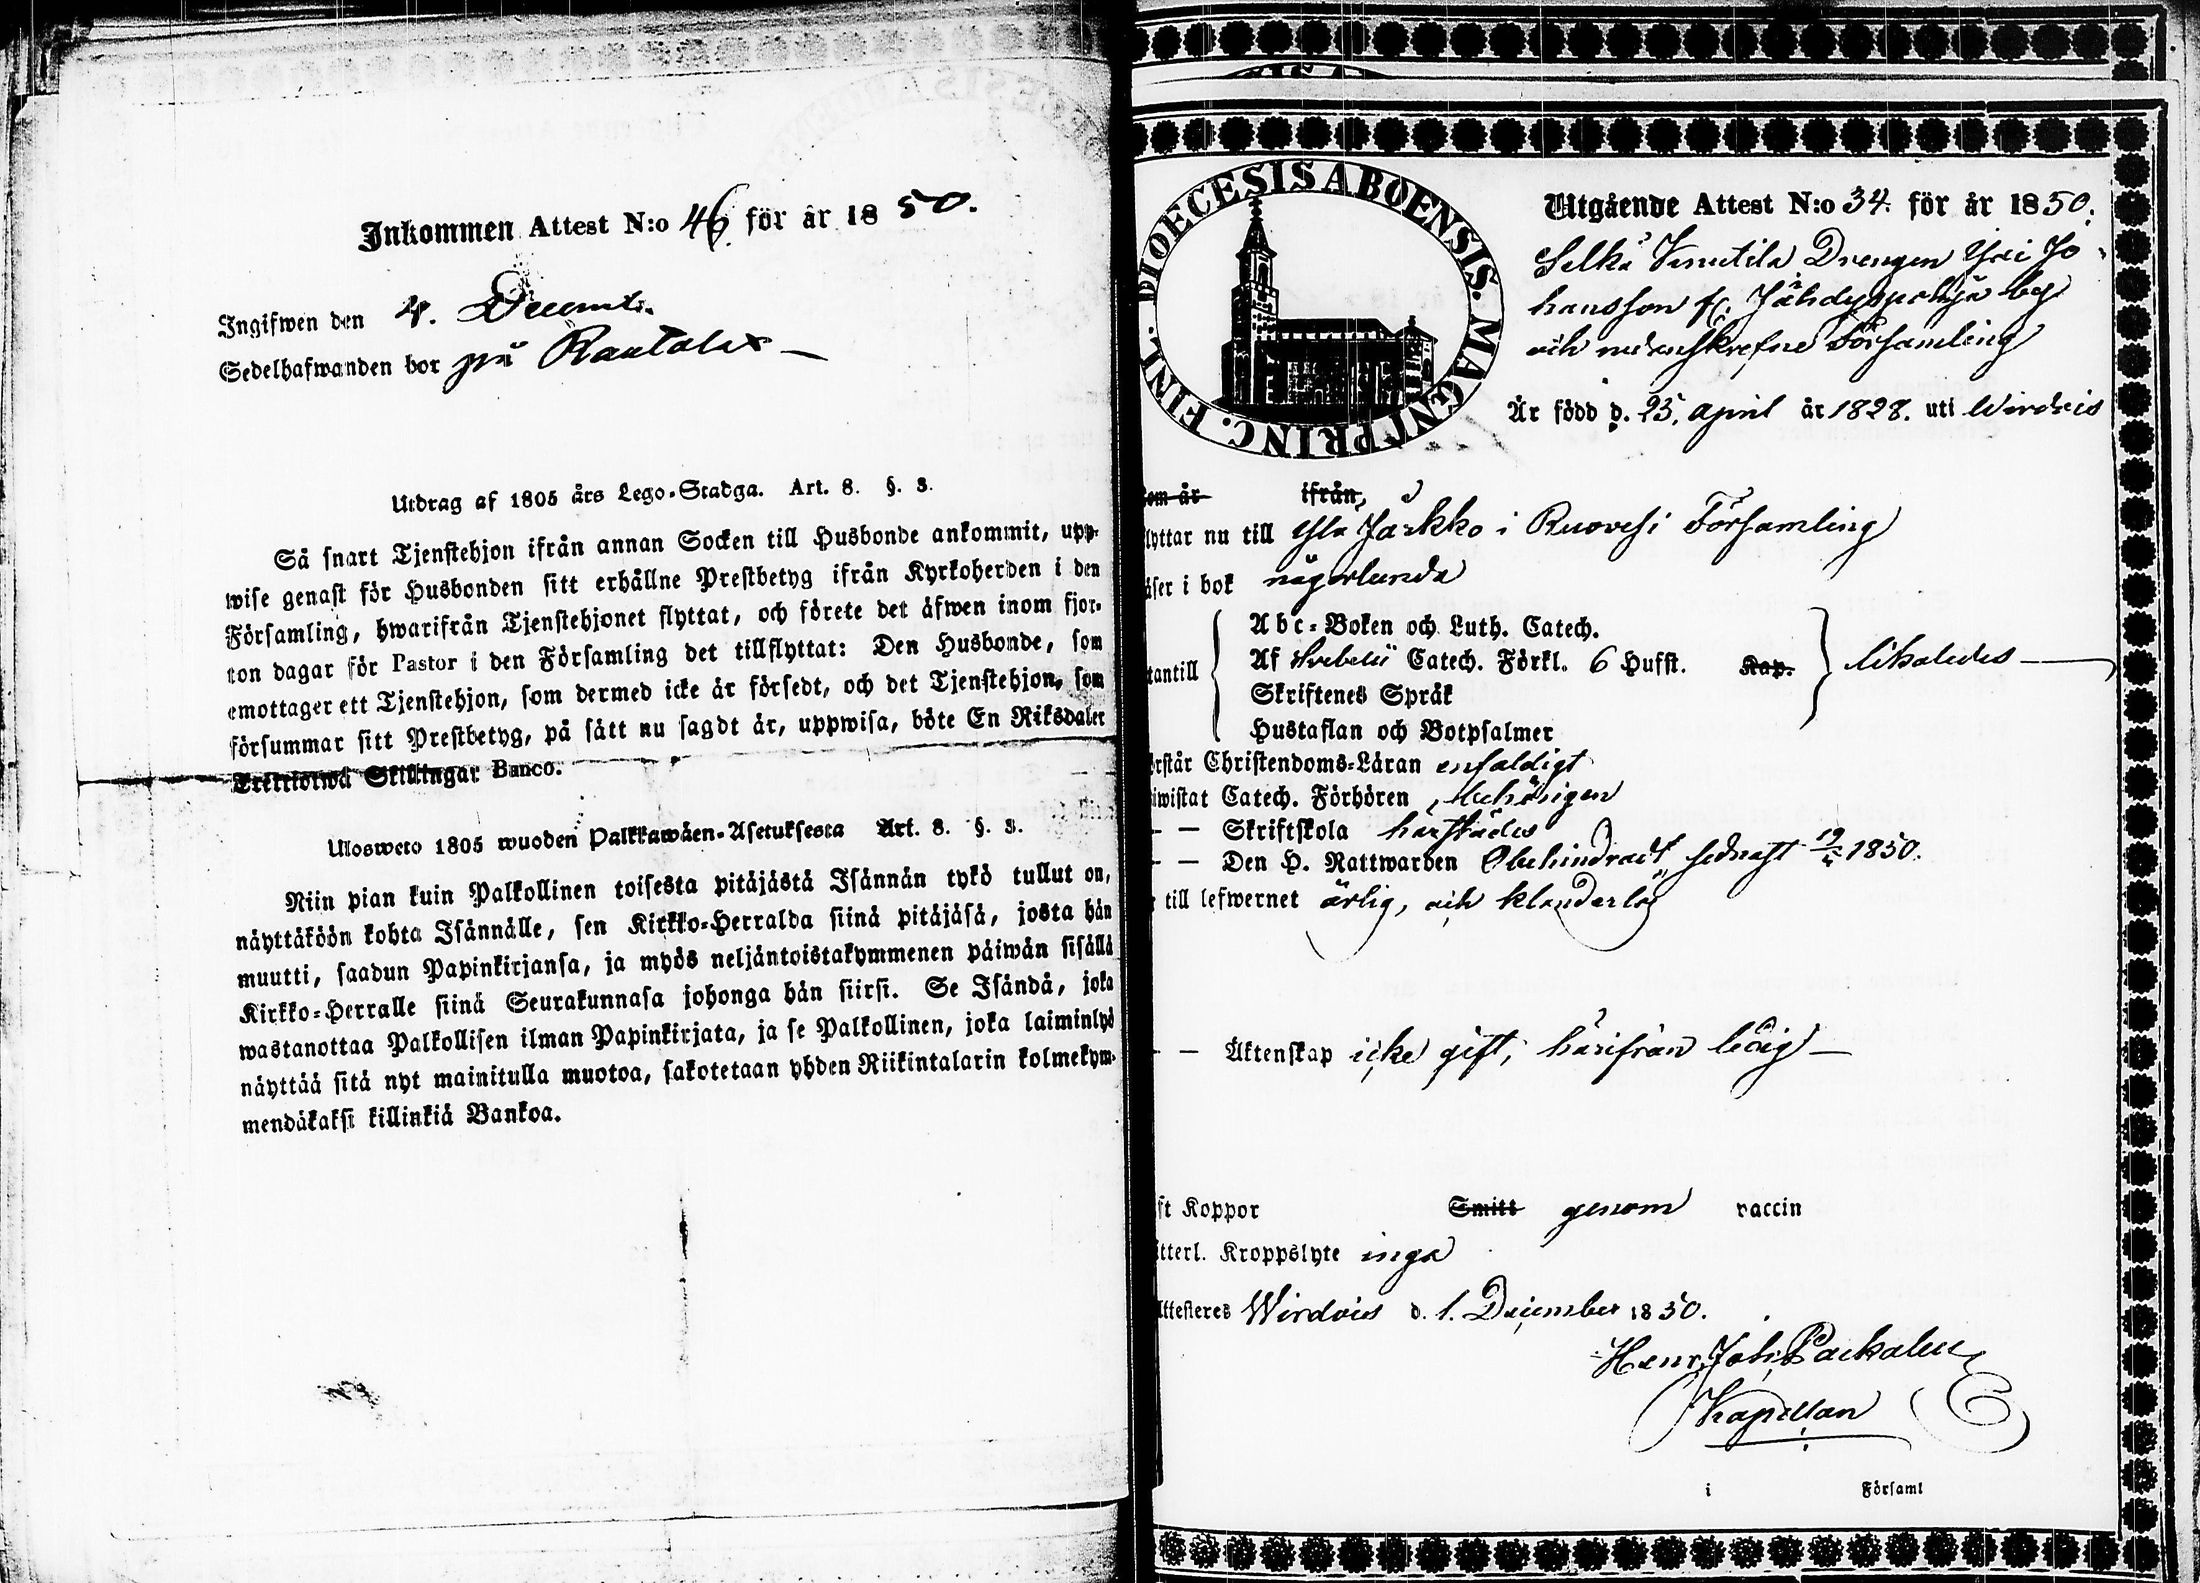 Inkommen Attest N:o 46. för år 18 50.
Ingifwen den 4. Decemb.
Sedelhafwanden bor på Rautala
Utdrag af 1805 års Lego-Stadga. Art. 8. §. 3.
Så snart Tjenstehjon ifrån annan Socken till Husbonde ankommit, upp-
wise genast för Husbonden sitt erhållne Prestbetyg ifrån Kyrkoherden i den
Församling, hwarifrån Tjenstehjonet flyttat, och förete det äfwen inom fjor-
ton dagar för Pastor i den Församling det tillflyttat: Den Husbonde, som
emottager ett Tjenstehjon, som dermed icke är försedt, och det Tjenstehjon, som
försummar sitt Prestbetyg, på sätt nu sagdt är, uppwisa, böte En Riksdaler
Trettiotwå Skillingar Banco.
Ulosweto 1805 wuoden Palkkawäen-Asetuksesta Art. 8. §. 3.
Niin pian kuin Palkollinen toisesta pitäjästä Isännän tykö tullut on,
näyttäköön kohta Isännälle, sen Kirkko-Herralda siinä pitäjäsä, josta hän
muutti, saadun Papinkirjansa, ja myös neljäntoistakymmenen päiwän sisällä
Kirkko-Herralle siinä Seurakunnasa johonga hän siirsi. Se Isändä, joka
wastanottaa Palkollisen ilman Papinkirjata, ja se Palkollinen, joka laiminlyö
näyttää sitä nyt mainitulla muotoa, sakotetaan yhden Riikintalarin kolmekym-
mendäkaksi killinkiä Bankoa.
DIOECESIS ABOENSIS. MAGNI PRINC. FINL.
Utgående Attest N:o 34. för år 1850.
Drengen Jo
hansson fr. Jähdyspohja by
och nedanskrefne Församling
Är född d. 25. april år 1828. uti Wirdois
som är ifrån,
lyttar nu till Yla Jäkko i Ruovesi Församling
äser i bok någorlunda
tantill
Abc-Boken och Luth. Catech.
Af Svebelii Catech. Förkl. 6 Hufst. Kap.
Skriftenes Språk
Hustaflan och Botpsalmer
likaledes
rstår Christendoms-Läran enfaldigt
iwistat Catech. Förhören behörigen
— — Skriftskola härstädes
— — Den H. Nattwarden Obehindradt, sednast 1850.
till lefwernet ärlig, och klanderlös
— — Äktenskap icke gift, härifrån ledig —
ft Koppor Smitt genom vaccin
itterl. Kroppslyte inga
ttesteres Wirdois d. 1. December 1850.
Henr. Joh. Packalen
Kapellan
i Församl